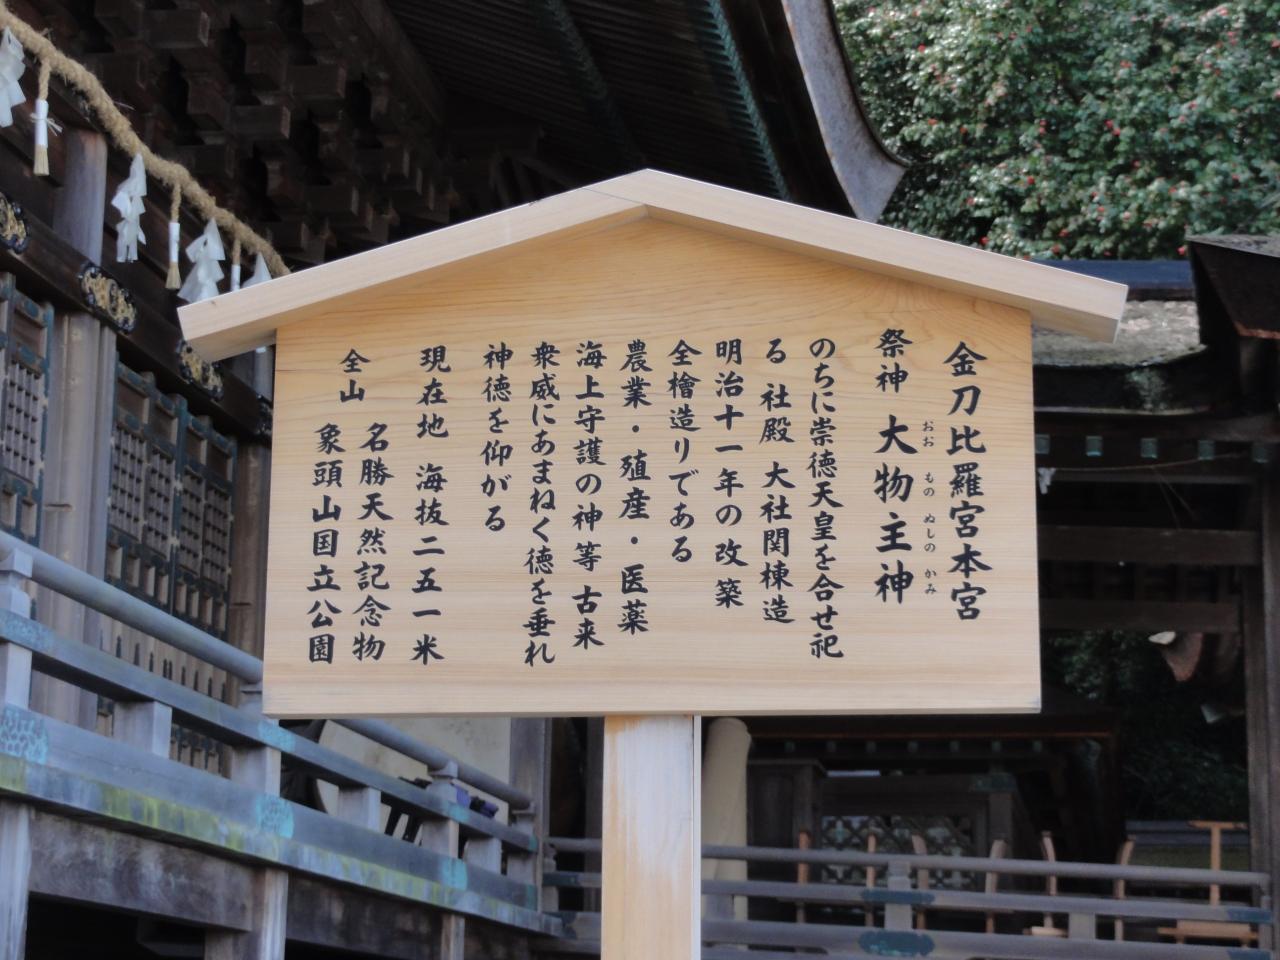 金刀比羅宮本宮
祭神 大物主神
おお ものぬしの かみ
のちに崇徳天皇を合せ祀
る 社殿 大社関棟造
明治十一年の改築
全檜造りである
農業・殖産・医薬
海上守護の神等 古来
衆威にあまねく徳を垂れ
神徳を仰がる
現在地 海抜二五一米
全山 名勝天然記念物
象頭山国立公園